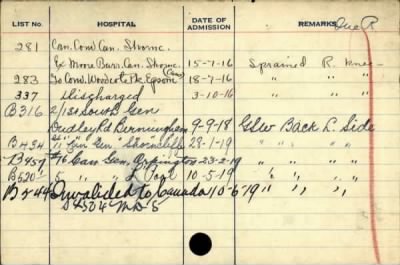 LIST NO. HOSPITAL DATE OF ADMISSION REMARKS
281 Can. Con. Can. Shornc.
Ex Moore Barr. Can. Shornc. 15-7-16 Sprained R. knee
283 To Con. Woodcote Pk. Epsom (Can) 18-7-16 " " "
337 Discharged 3-10-16 " "
B316 2/1st South Gen
Dudley Rd Birmingham 9-9-18 GSW Back L. Side
B434 #11 "Can Gen" Shorncliffe 28-1-19 " " "
B457 #16 Can Gen, Orpington 23-2-19 " " "
B520 5 " " L'Pool 10-5-19 " " "
B544 Invalided to Canada 10-6-19 " " "
MD-5